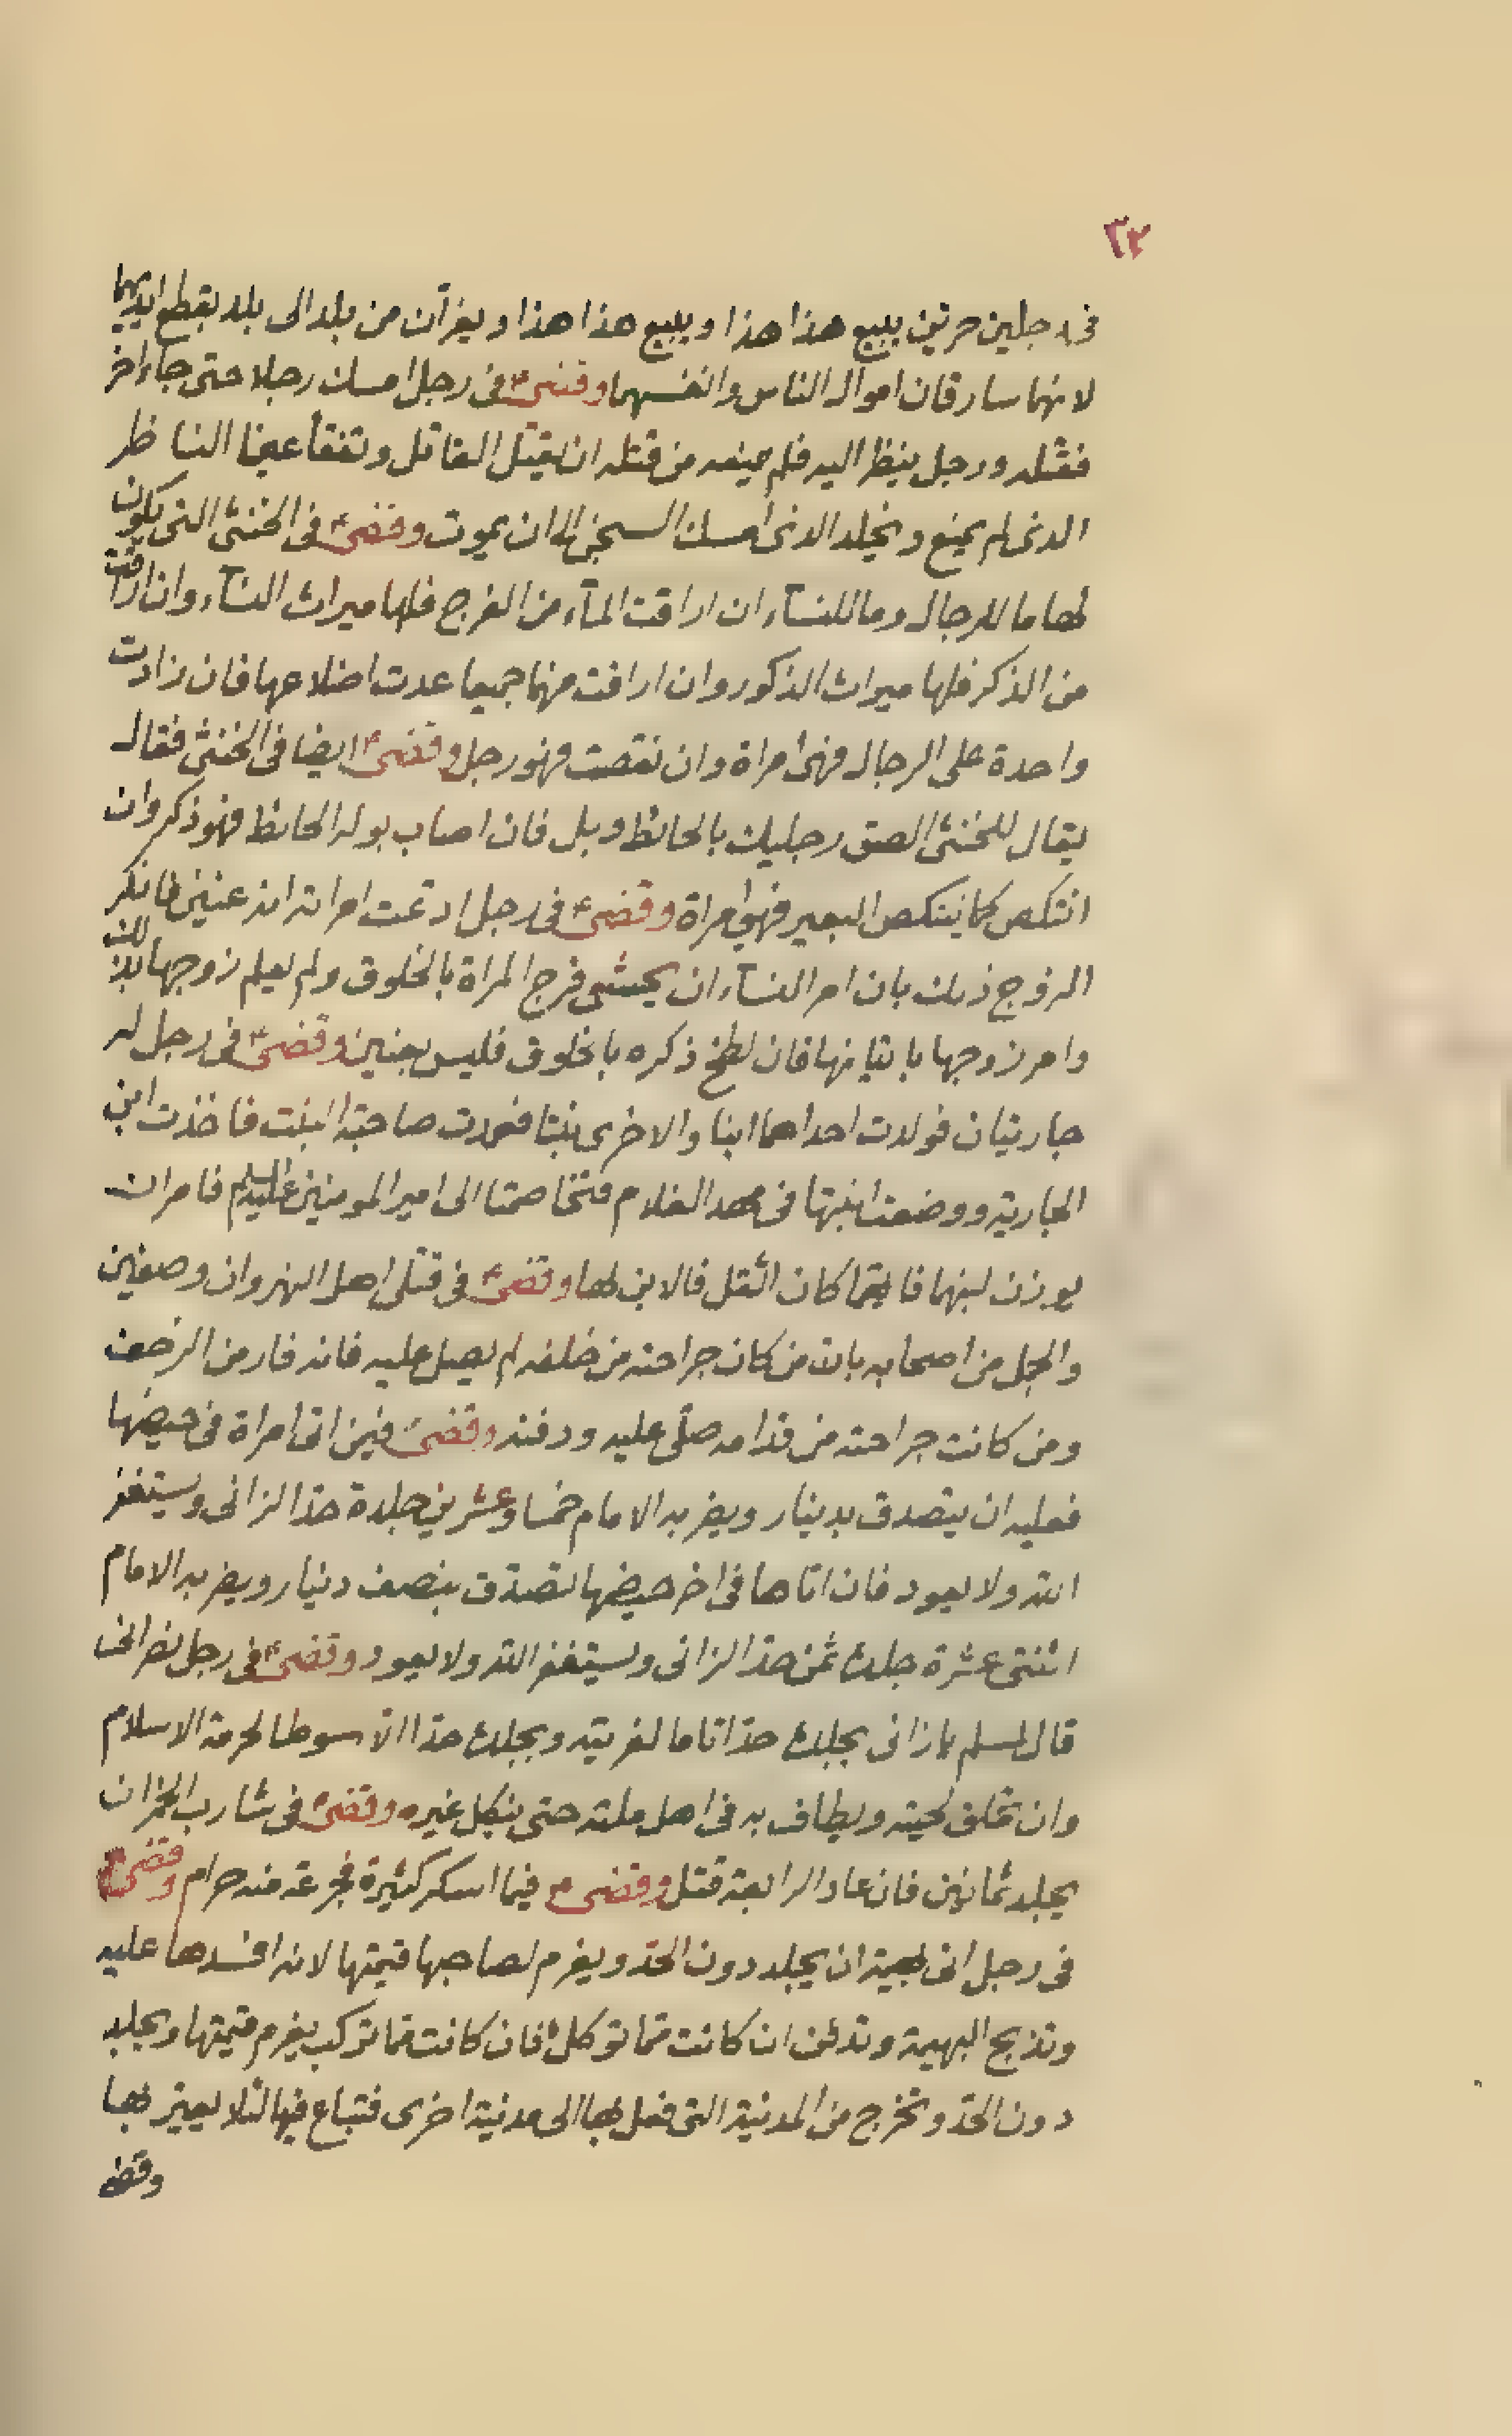 ٣٢
فى رجلين حرين يبيع هذا هذا ويبيع هذا هذا ويفرّان من بلد الى بلد بقطع ايديهما
لانهما سارقان اموال الناس وانفسهما وقضىء فى رجل امسك رجلا حتى جاء اخر
فقتله ورجل ينظر اليه فلم يمنعه من قتله ان يقتل القاتل وتفقأ عينا الناظر
الذى لم يمنع ويخلد الذى امسك السجن الى ان يموت وقضىء فى الخنثى التى يكون
لها ما للرجال وما للنسآء ان اراقت المآء من الفرج فلها ميراث النسآء وان اراقت
من الذكر فلها ميراث الذكور وان اراقت منهما جميعا عدت اضلاعها فان زادت
واحدة على الرجال فهى امراة وان نقصت فهو رجل وقضىء ايضا فى الخنثى فقال
يقال للخنثى الصق رجليك بالحائط وبل فان اصاب بوله الحائط فهو ذكر وان
انتكص كما ينتكص البعير فهى امراة وقضىء فى رجل ادعت امراته انه عنين فانكر
الزوج ذلك بان امر النسآء ان يحشى فرج المراة بالخلوق ولم يعلم زوجها بذلك
وامر زوجها باتيانها فان لطخ ذكره بالخلوق فليس بعنين وقضىء فى رجل له
جاريتان فولدت احداهما ابنا والاخرى بنتا فعمدت صاحبة البنت فاخذت ابن
الجارية ووضعت ابنتها فى مهد الغلام فتخاصمتا الى امير المومنين عليه السلم فامر ان
يوزن لبنهما فايتهما كان اثقل فالابن لها وقضىء فى قتلى اهل النهروان وصفين
والجمل من اصحابه بانه من كان جراحته من خلفه لم يصل عليه فانه فار من الزحف
ومن كانت جراحته من قدامه صلّى عليه ودفنه وقضىء فيمن اتى امراة فى حيضها
فعليه ان يتصدق بدينار ويضربه الامام خمسا وعشرين جلدة حدّ الزانى ويستغفر
الله ولا يعود فان اتاها فى اخر حيضها تصدّق بنصف دينار ويضربه الامام
اثنتى عشرة جلدة ثمن حدّ الزانى ويستغفر الله ولا يعود وقضىء فى رجل نصرانى
قال لمسلم يا زانى يجلد حدّا تاما لفريته ويجلد حدّا الّا سوطا لحرمة الاسلام
وان تحلق لحيته ويطاف به فى اهل ملته حتى ينكل غيره وقضىء فى شارب الخمر ان
يجلد ثمانين فان عاد الرابعة قتل وقضىء فيما اسكر كثيره فجرعة منه حرام وقضىء
فى رجل اتى بهيمة ان يجلد دون الحدّ ويغرم لصاحبها قيمتها لانه افسدها عليه
وتذبح البهيمة وتدفن ان كانت ممّا توكل فان كانت ممّا تركب يغرم قيمتها ويجلد
دون الحدّ وتخرج من المدينة التى فعل بها الى مدينة اخرى فتباع فيها لئلا يعيّر بها
وقضى